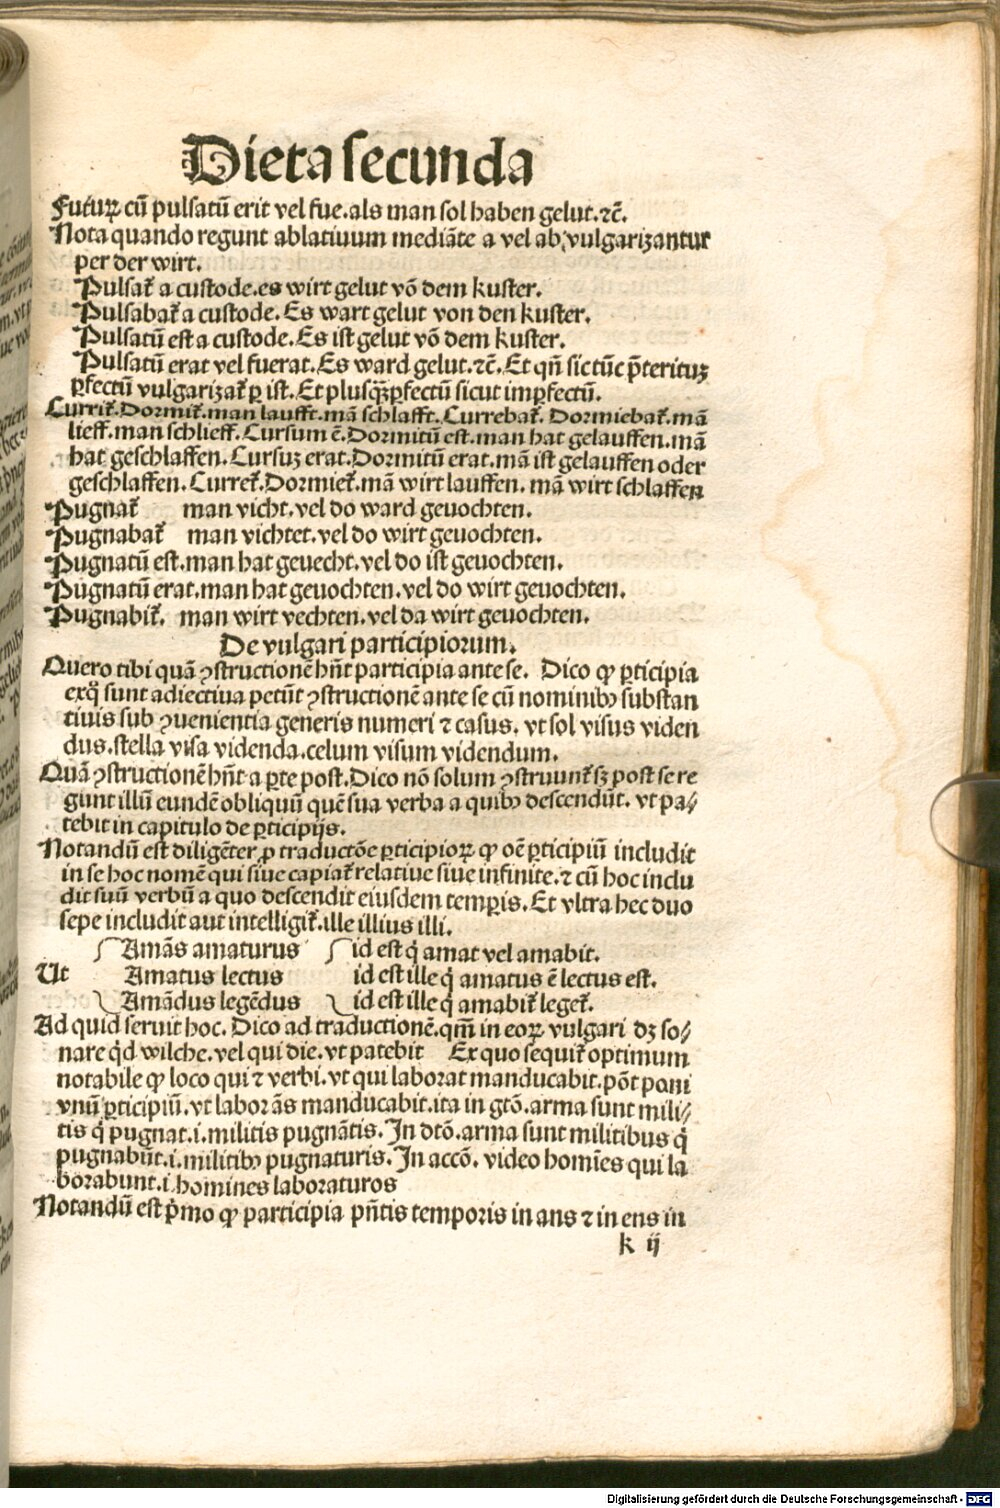 Dieta secunda
Futuꝝ cū pulsatū erit vel fue.als man sol haben gelut.ꝛc̄.
Nota quando regunt ablatiuum mediāte a vel ab,vulgarizantur
per der wirt.
Pulsat᷑ a custode.es wirt gelut vō dem kuster.
Pulsabat᷑ a custode. Es wart gelut von den kuster.
Pulsatū est a custode.Es ist gelut vō dem kuster.
Pulsatū erat vel fuerat.Es ward gelut.ꝛc̄. Et qn̄ sic tūc p̄terituꝫ
ꝑfectū vulgarizat᷑ ꝑ ist. Et plusqꝫꝑfectū sicut imꝑfectū.
Currit᷑.Dormit᷑.man laufft.mā schlafft. Currebat᷑. Dormiebat᷑.mā
lieff.man schlieff. Cursum ē.Dormitū est.man hat gelauffen.mā
hat geschlaffen. Cursuꝫ erat.Dormitū erat.mā ist gelauffen oder
geschlaffen. Curret᷑.Dormiet᷑.mā wirt lauffen. mā wirt schlaffen
Pugnat᷑ man vicht.vel do ward geuochten.
Pugnabat᷑ man vichtet.vel do wirt geuochten.
Pugnatū est.man hat geuecht.vel do ist geuochten.
Pugnatū erat.man hat geuochten.vel do wirt geuochten.
Pugnabit᷑. man wirt vechten.vel da wirt geuochten.
De vulgari participiorum.
Quero tibi quā ꝯstructionē hn̄t participia ante se. Dico ꝙ ꝑticipia
exq̊ sunt adiectiua petūt ꝯstructionē ante se cū nominibꝫ substan
tiuis sub ꝯuenientia generis numeri ꝛ casus. vt sol visus viden
dus.stella visa videnda.celum visum videndum.
Quā ꝯstructionē hn̄t a ꝑte post.Dico nō solum ꝯstruunt᷑ sꝫ post se re
gunt illū eundē obliquū quē sua verba a quibꝫ descendūt. vt pa⸗
tebit in capitulo de ꝑticipijs.
Notandū est diligēter ꝓ traductōe ꝑticipioꝝ ꝙ oē ꝑticipiū includit
in se hoc nomē qui siue capiat᷑ relatiue siue infinite.ꝛ cū hoc inclu
dit suū verbū a quo descendit eiusdem temꝑis. Et vltra hec duo
sepe includit aut intelligit᷑.ille illius illi.
Amās amaturus id est q̇ amat vel amabit.
Ut Amatus lectus id est ille q̇ amatus ē lectus est.
Amādus legēdus id est ille q̇ amabit᷑ leget᷑.
Ad quid seruit hoc. Dico ad traductionē.qm̄ in eoꝝ vulgari dꝫ so⸗
nare q̇d wilche.vel qui die.vt patebit Ex quo sequit᷑ optimum
notabile ꝙ loco qui ꝛ verbi.vt qui laborat manducabit.pōt poni
vnū ꝑticipiū.vt laborās manducabit.ita in gtō.arma sunt mili⸗
tis q̇ pugnat.i.militis pugnātis. In dtō.arma sunt militibus q̇
pugnabūt.i.militibꝫ pugnaturis. In accō. video homīes qui la
borabunt.i.homines laboraturos
Notandū est p̄mo ꝙ participia pn̄tis temporis in ans ꝛ in ens in
k ij
Digitalisierung gefördert durch die Deutsche Forschungsgemeinschaft - DFG